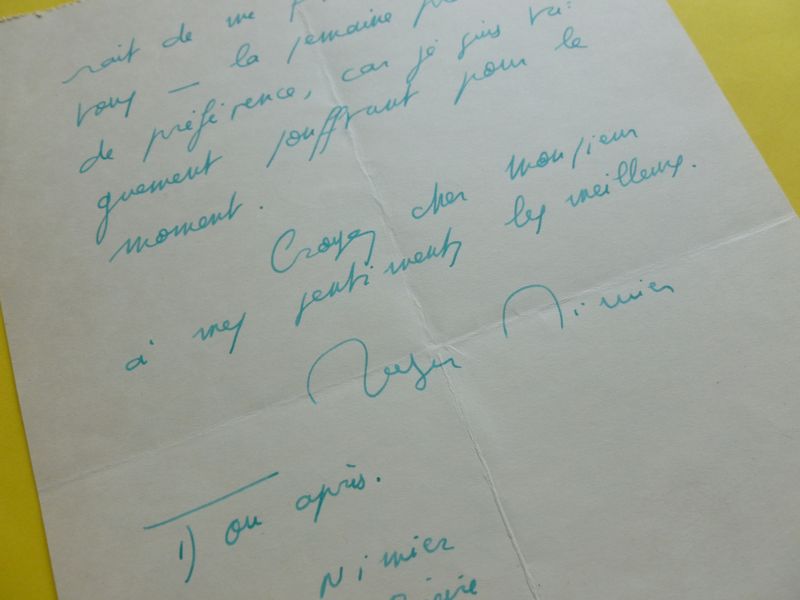 rait de me
vous — la semaine
de préférence, car je suis va=
guement souffrant pour le
moment.
Croyez cher monsieur
à mes sentiments les meilleurs.
Roger Nimier
1) ou après.
Nimier